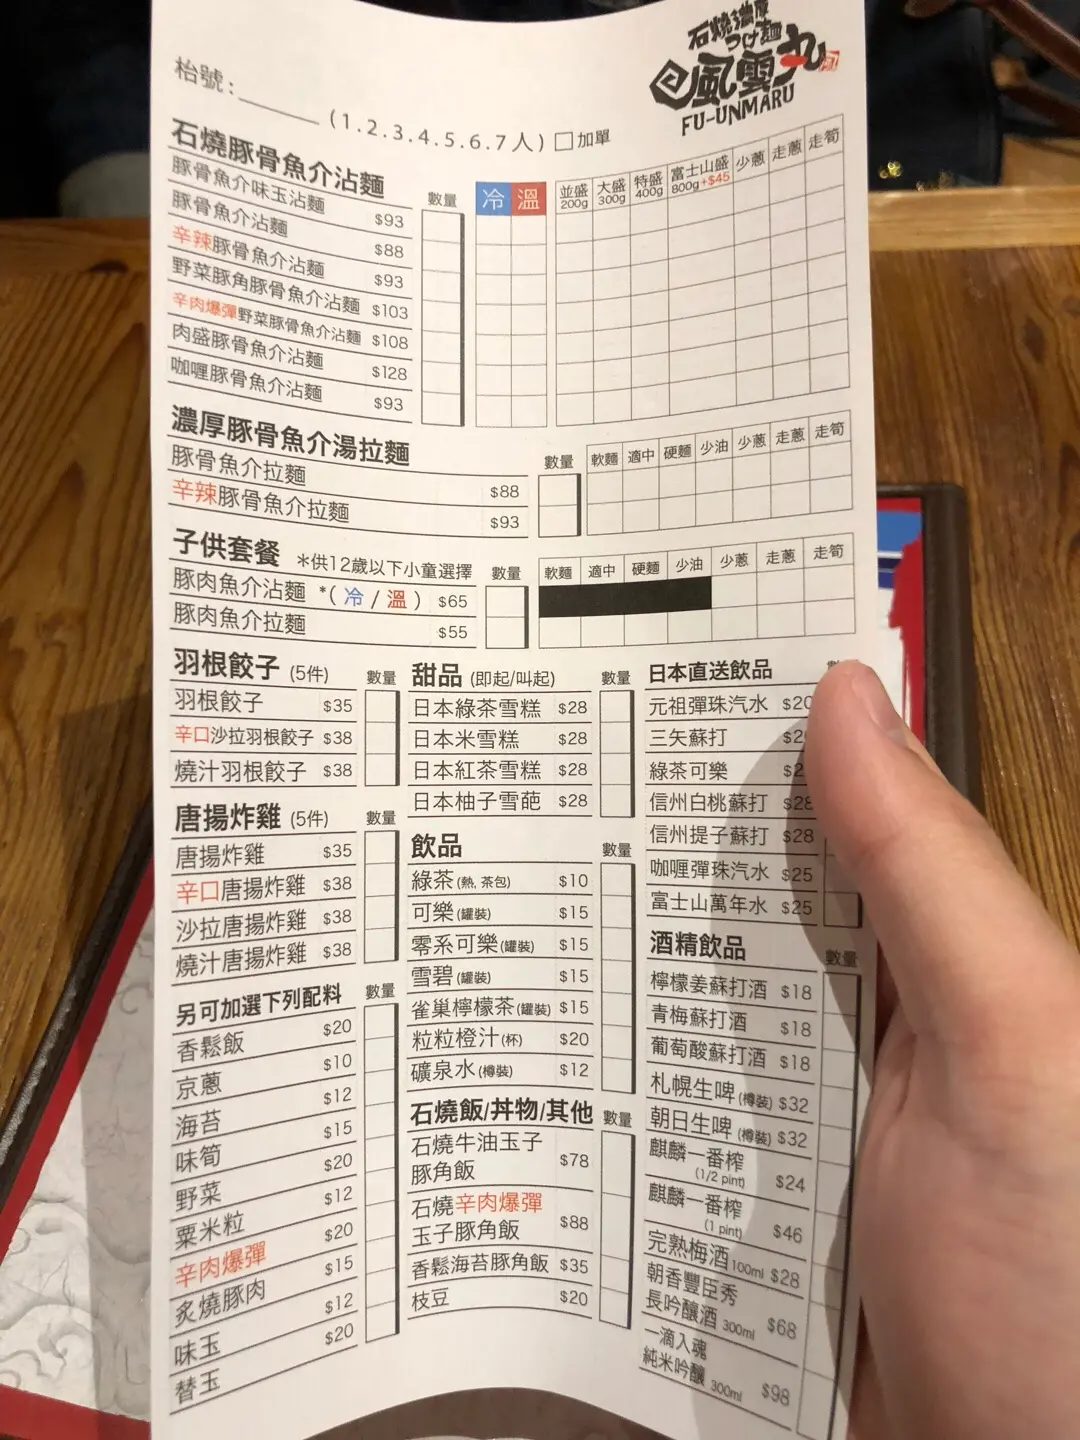 石燒濃厚
つけ麵
風雲丸
FU-UNMARU
枱號:______ (1.2.3.4.5.6.7人) □加單
石燒豚骨魚介沾麵 數量 冷 溫 並盛200g 大盛300g 特盛400g 富士山盛800g+$45 少蔥 走蔥 走筍
豚骨魚介味玉沾麵 $93
豚骨魚介沾麵 $88
辛辣豚骨魚介沾麵 $93
野菜豚角豚骨魚介沾麵 $103
辛肉爆彈野菜豚骨魚介沾麵 $108
肉盛豚骨魚介沾麵 $128
咖喱豚骨魚介沾麵 $93
濃厚豚骨魚介湯拉麵 數量 軟麵 適中 硬麵 少油 少蔥 走蔥 走筍
豚骨魚介拉麵 $88
辛辣豚骨魚介拉麵 $93
子供套餐 *供12歲以下小童選擇 數量 軟麵 適中 硬麵 少油 少蔥 走蔥 走筍
豚肉魚介沾麵 *(冷/溫) $65
豚肉魚介拉麵 $55
羽根餃子 (5件) 數量
羽根餃子 $35
辛口沙拉羽根餃子 $38
燒汁羽根餃子 $38
唐揚炸雞 (5件) 數量
唐揚炸雞 $35
辛口唐揚炸雞 $38
沙拉唐揚炸雞 $38
燒汁唐揚炸雞 $38
另可加選下列配料 數量
香鬆飯 $20
京蔥 $10
海苔 $12
味筍 $15
野菜 $20
粟米粒 $12
辛肉爆彈 $20
炙燒豚肉 $15
味玉 $12
替玉 $20
甜品 (即起/叫起) 數量
日本綠茶雪糕 $28
日本米雪糕 $28
日本紅茶雪糕 $28
日本柚子雪葩 $28
飲品 數量
綠茶(熱, 茶包) $10
可樂(罐裝) $15
零系可樂(罐裝) $15
雪碧(罐裝) $15
雀巢檸檬茶(罐裝) $15
粒粒橙汁(杯) $20
礦泉水(樽裝) $12
石燒飯/丼物/其他 數量
石燒牛油玉子
豚角飯 $78
石燒辛肉爆彈
玉子豚角飯 $88
香鬆海苔豚角飯 $35
枝豆 $20
日本直送飲品
元祖彈珠汽水 $20
三矢蘇打
綠茶可樂
信州白桃蘇打 $28
信州提子蘇打 $28
咖喱彈珠汽水 $25
富士山萬年水 $25
酒精飲品 數量
檸檬姜蘇打酒 $18
青梅蘇打酒 $18
葡萄酸蘇打酒 $18
札幌生啤(樽裝) $32
朝日生啤(樽裝) $32
麒麟一番榨
(1/2 pint) $24
麒麟一番榨
(1 pint) $46
完熟梅酒100ml $28
朝香豐臣秀
長吟釀酒 300ml $68
一滴入魂
純米吟釀 300ml $98